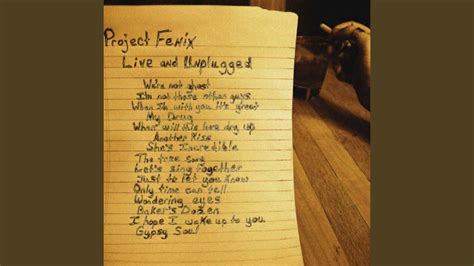 Project Fenix
Live and Unplugged
We're not ghost
I'm not those other guys
When I'm with you it's great
My Drug
When will this love dry up
Another Kiss
She's Incredible
The tree song
Let's sing together
Just to let you know
Only time can tell
Wondering eyes
Baker's Dozen
I hope I wake up to you
Gypsy Soul